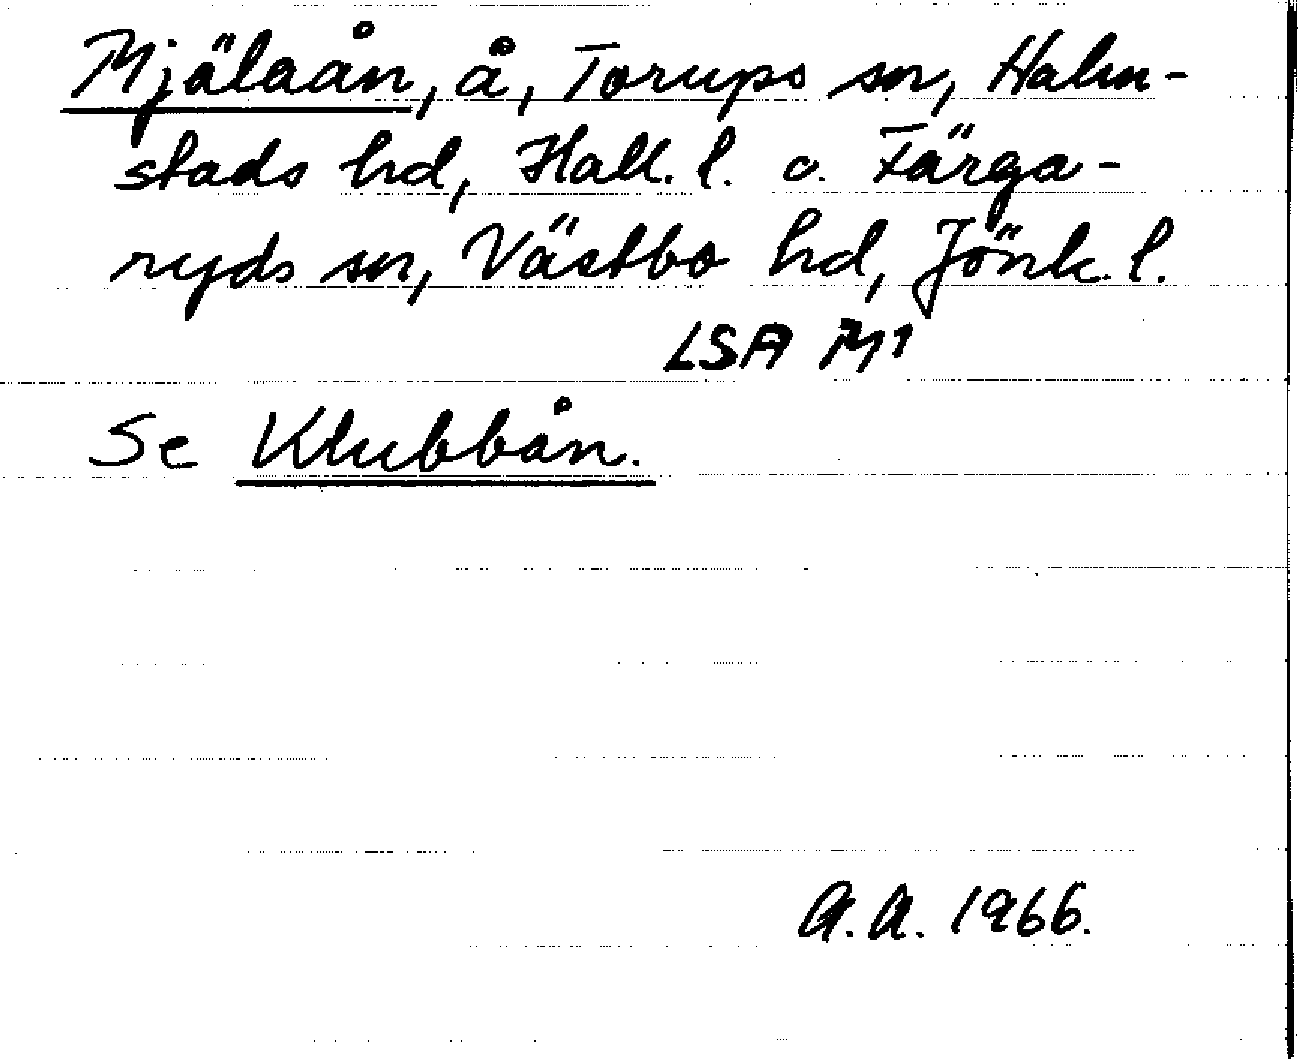 Mjälaån, å, Torups sn, Halm-
stads hd, Hall. l. o. Färga-
ryds sn, Västbo hd, Jönk. l.
LSA M1
Se Klubbån.
A.A. 1966.